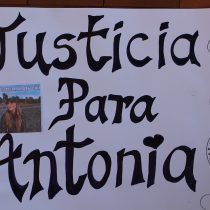 Justicia
Para
Antonia